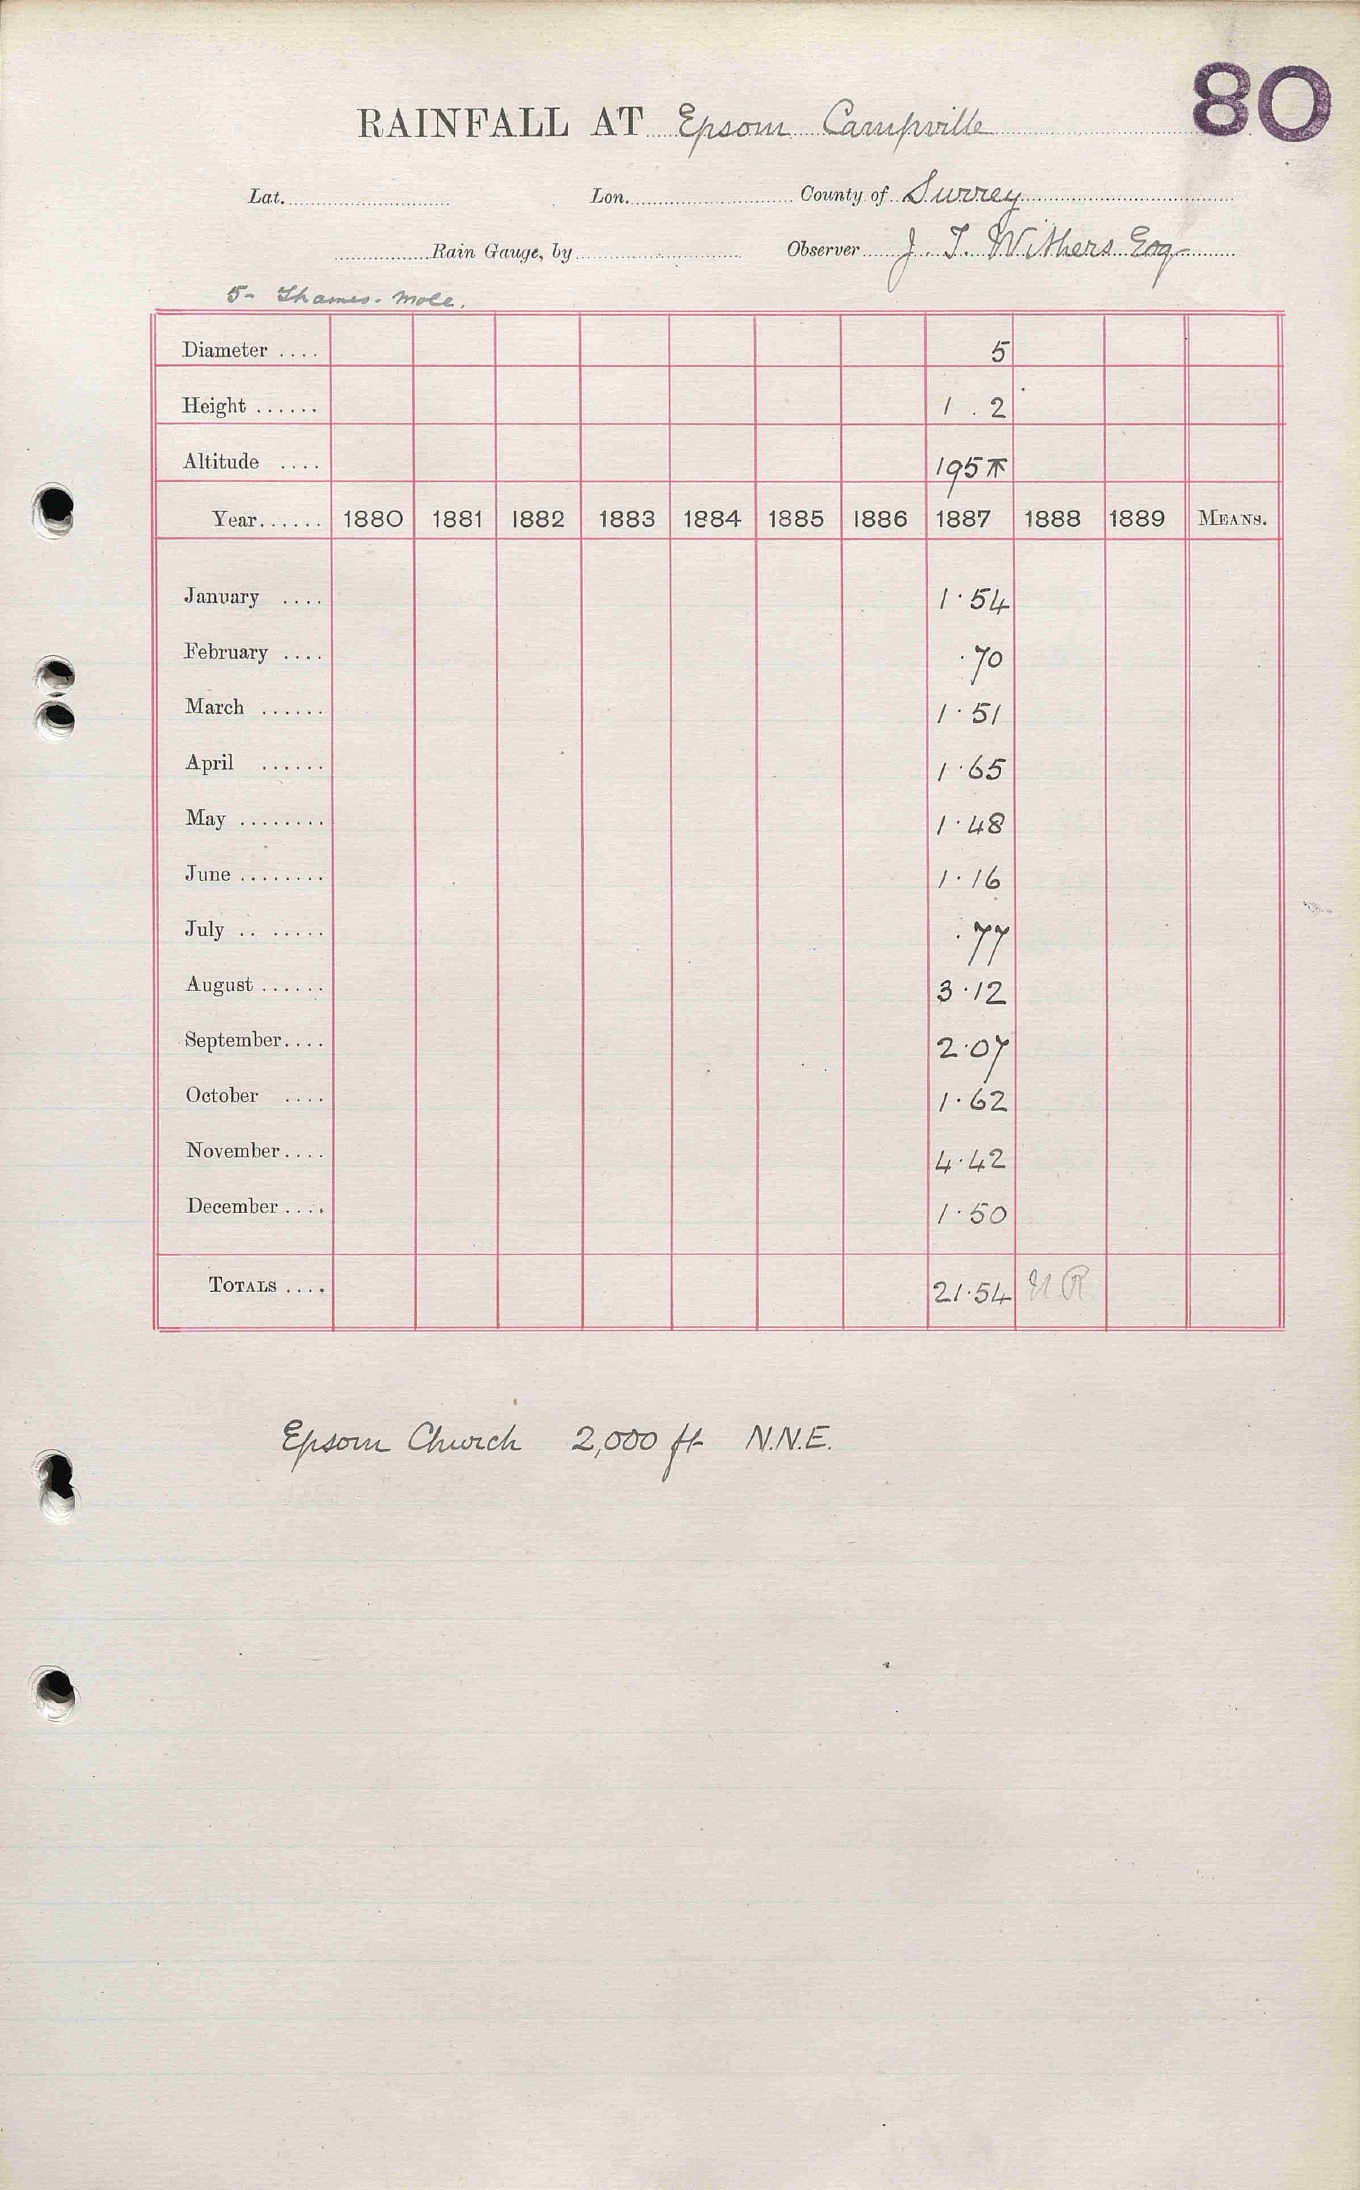 80
RAINFALL AT Epsom Campville
Lat. Lon. County of Surrey
Rain Gauge, by Observer J. T. Withers Esq
5- Thames. Mole.
Diameter .... 5
Height ...... 1 . 2
Altitude .... 195
Year...... 1880 1881 1882 1883 1884 1885 1886 1887 1888 1889 MEANS.
January .... 1.54
February .... .70
March ...... 1.51
April ...... 1.65
May ........ 1.48
June ........ 1.16
July .. ..... .77
August ...... 3.12
September.... 2.07
October .... 1.62
November.... 4.42
December .... 1.50
TOTALS .... 21.54
Epsom Church 2,000 ft N.N.E.